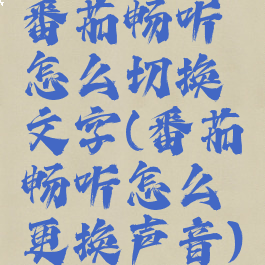 番茄畅听
怎么切换
文字(番茄
畅听怎么
更换声音)